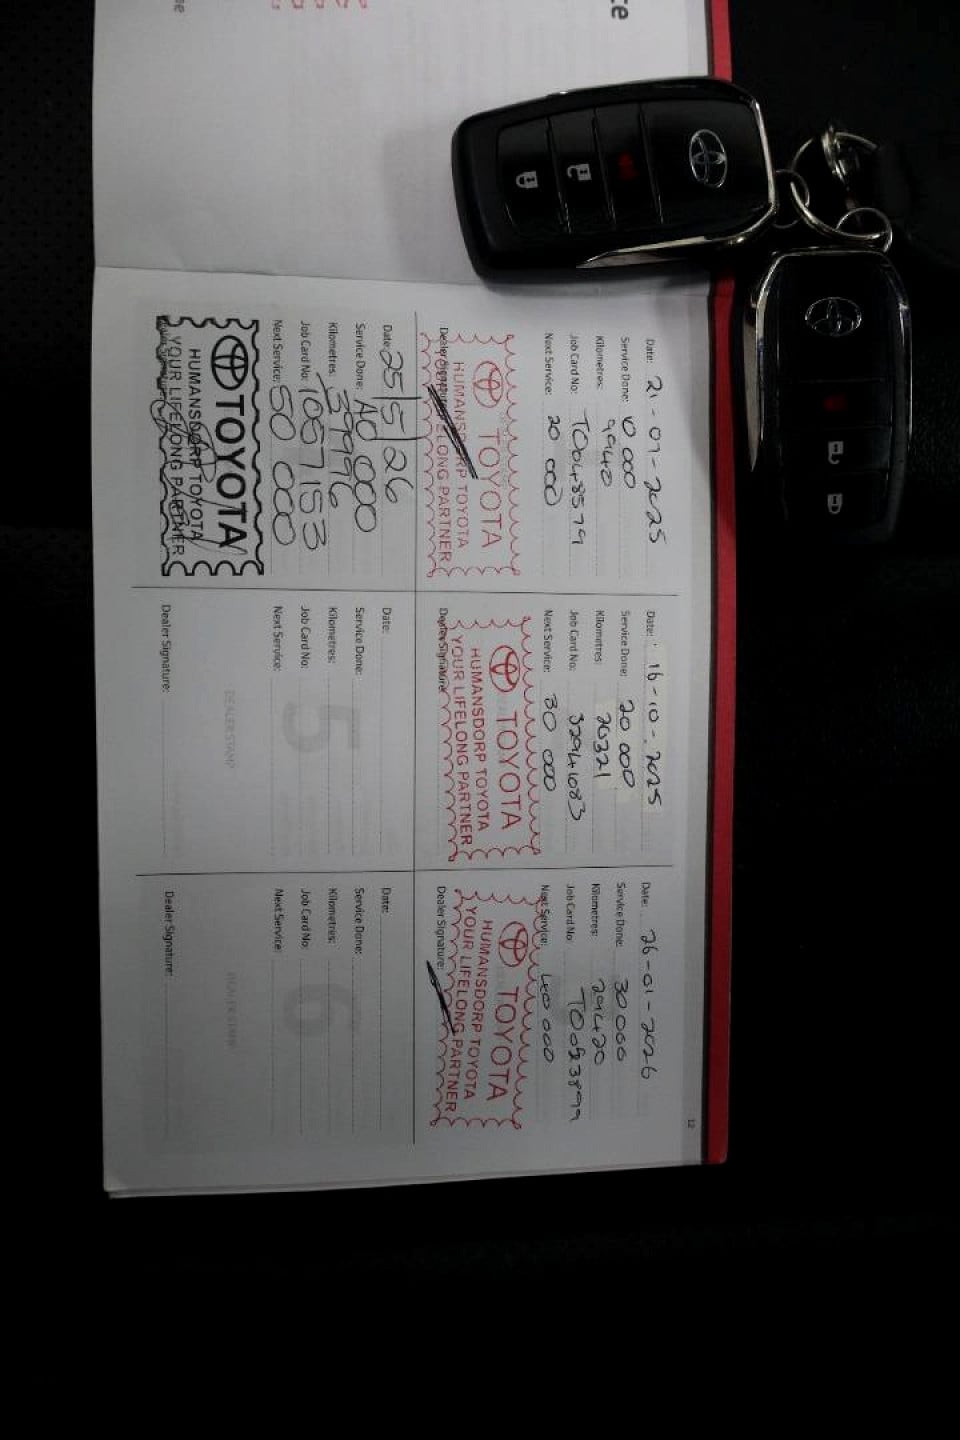 ce
Date: 21-07-2025
Service Done: 10 000
Kilometres: 9940
Job Card No: T0048579
Next Service: 20 000
TOYOTA
HUMANSDORP TOYOTA
YOUR LIFELONG PARTNER
Dealer Signature:
Date: 16-10-2025
Service Done: 20 000
Kilometres: 20321
Job Card No: 32941083
Next Service: 30 000
TOYOTA
HUMANSDORP TOYOTA
YOUR LIFELONG PARTNER
Dealer Signature:
Date: 26-01-2026
Service Done: 30 000
Kilometres: 29420
Job Card No:
Next Service: 40 000
TOYOTA
HUMANSDORP TOYOTA
YOUR LIFELONG PARTNER
Dealer Signature:
Date: 25/5/26
Service Done: 40 000
Kilometres: 39996
Job Card No: 1087153
Next Service: 50 000
TOYOTA
HUMANSDORP TOYOTA
YOUR LIFELONG PARTNER
Date:
Service Done:
Kilometres:
Job Card No:
Next Service:
5
DEALER STAMP
Dealer Signature:
Date:
Service Done:
Kilometres:
Job Card No:
Next Service:
6
DEALER STAMP
Dealer Signature:
12